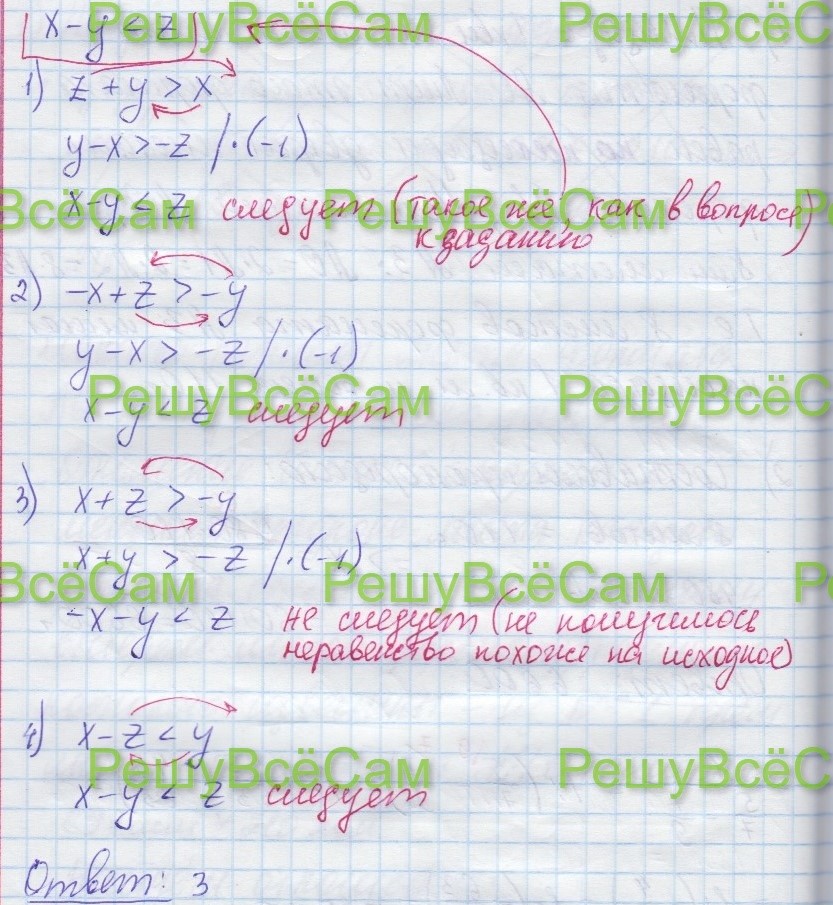 РешуВсёСам РешуВсёСам
x-y < z
1) z + y > x
y-x > -z /·(-1)
ВсёСам РешуВсёСам Реш
x-y < z следует (такое же, как в вопросе
к заданию)
2) -x + z > -y
y-x > -z /·(-1)
РешуВсёСам РешуВсёСам
x-y < z следует
3) x + z > -y
x+y > -z /·(-1)
ВсёСам РешуВсёСам Реш
-x-y < z не следует (не получилось
неравенство похоже на исходное)
4) x-z < y
РешуВсёСам РешуВсёСам
x-y < z следует
Ответ: 3